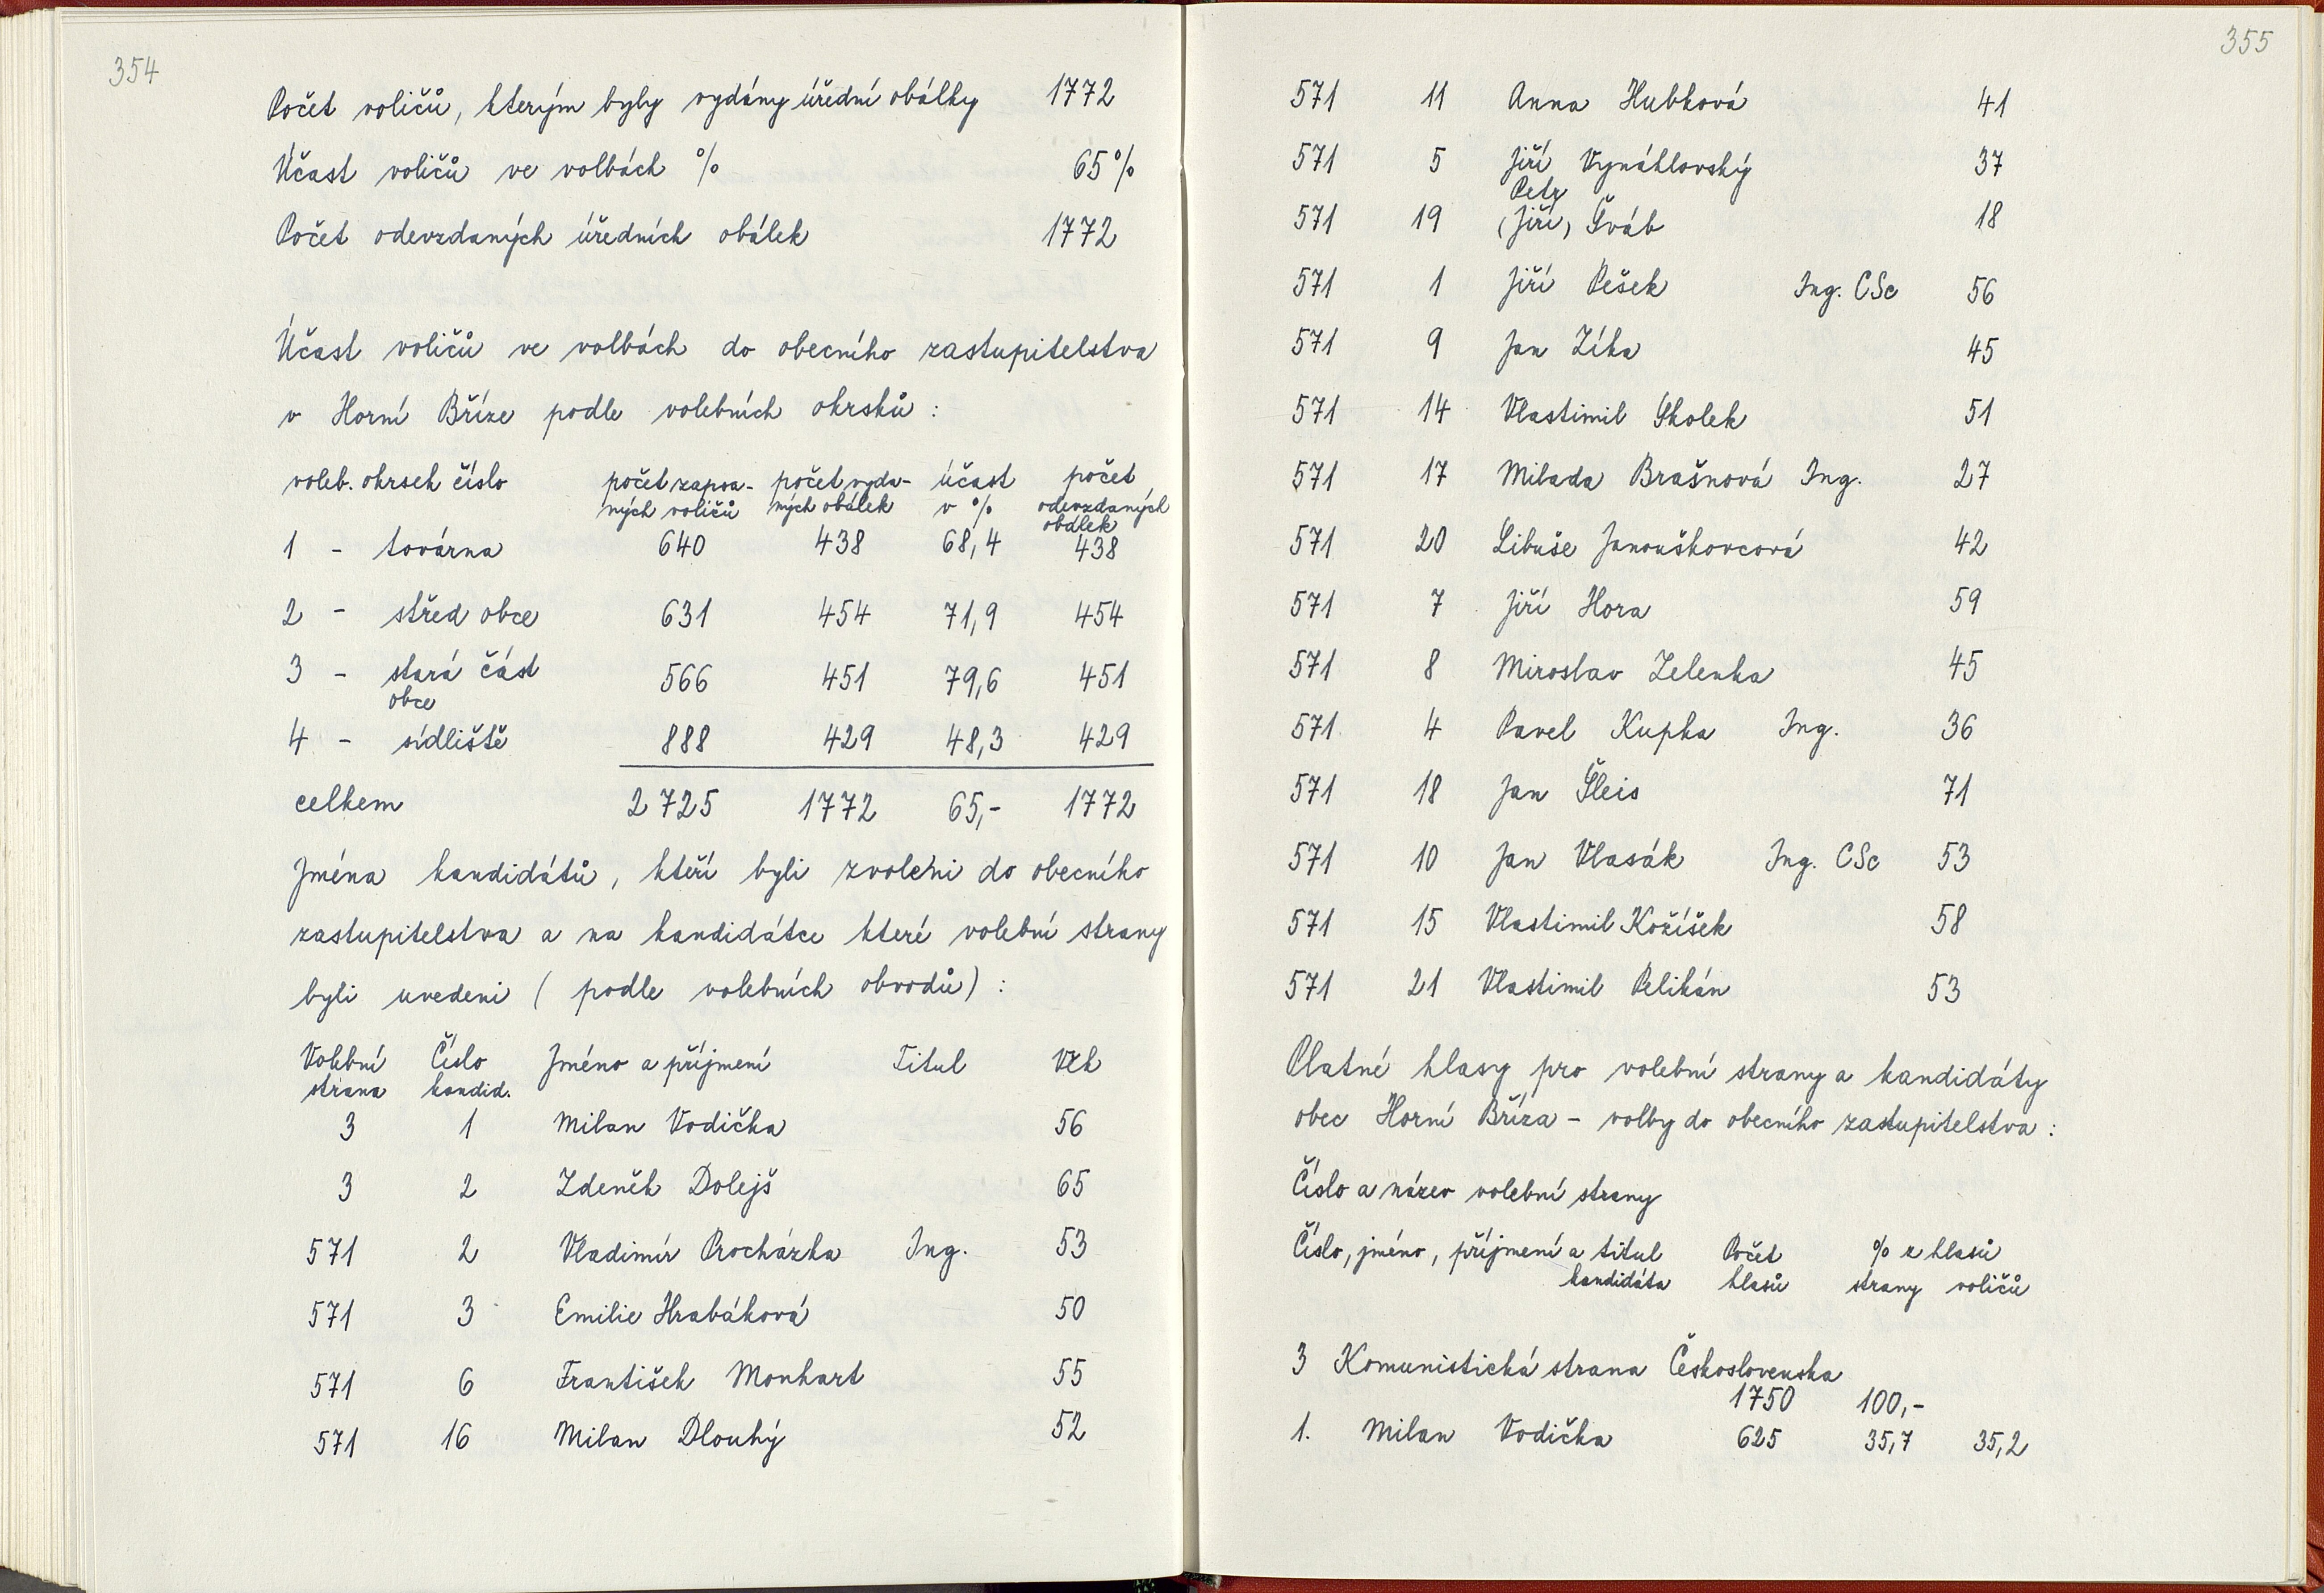 354
Počet voličů, kterým byly vydány úřední obálky 1772
Účast voličů ve volbách % 65%
Počet odevzdaných úředních obálek 1772
Účast voličů ve volbách do obecního zastupitelstva
v Horní Bříze podle volebních okrsků :
voleb. okrsek číslo počet zapsa- počet vyda- účast počet
ných voličů ných obálek v % odevzdaných
obálek
1 - továrna 640 438 68,4 438
2 - střed obce 631 454 71,9 454
3 - stará část 566 451 79,6 451
obce
4 - sídliště 888 429 48,3 429
celkem 2 725 1772 65,- 1772
Jména kandidátů, kteří byli zvoleni do obecního
zastupitelstva a na kandidátce které volební strany
byli uvedeni ( podle volebních obvodů) :
Volební Číslo Jméno a příjmení Titul Věk
strana kandid.
3 1 Milan Vodička 56
3 2 Zdeněk Dolejš 65
571 2 Vladimír Procházka Ing. 53
571 3 Emilie Hrabáková 50
571 6 František Monhart 55
571 16 Milan Dlouhý 52
355
571 11 Anna Hubková 41
571 5 Jiří Vynáhlovský 37
Petr
571 19 (Jiří) Šváb 18
571 1 Jiří Pešek Ing. CSc 56
571 9 Jan Zíka 45
571 14 Vlastimil Skolek 51
571 17 Milada Brašnová Ing. 27
571 20 Libuše Janouškovcová 42
571 7 Jiří Hora 59
571 8 Miroslav Zelenka 45
571 4 Pavel Kupka Ing. 36
571 18 Jan Šleis 71
571 10 Jan Vlasák Ing. CSc 53
571 15 Vlastimil Kožíšek 58
571 21 Vlastimil Pelikán 53
Platné hlasy pro volební strany a kandidáty
obec Horní Bříza - volby do obecního zastupitelstva :
Číslo a název volební strany
Číslo, jméno, příjmení a titul Počet % z hlasů
kandidáta hlasů strany voličů
3 Komunistická strana Československa
1750 100,-
1. Milan Vodička 625 35,7 35,2